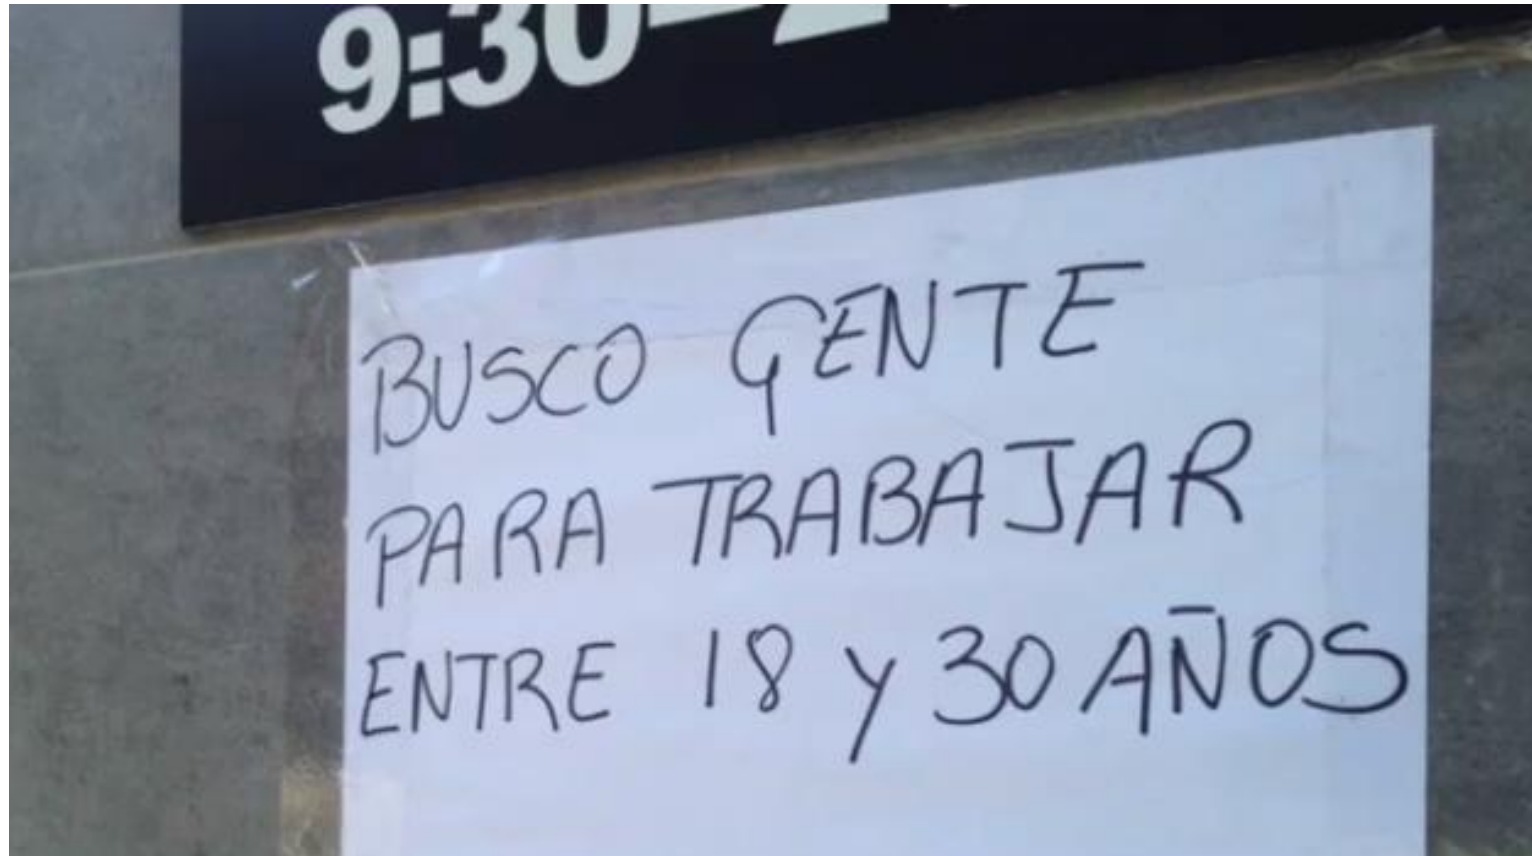 9:30-2
BUSCO GENTE
PARA TRABAJAR
ENTRE 18 Y 30 AÑOS